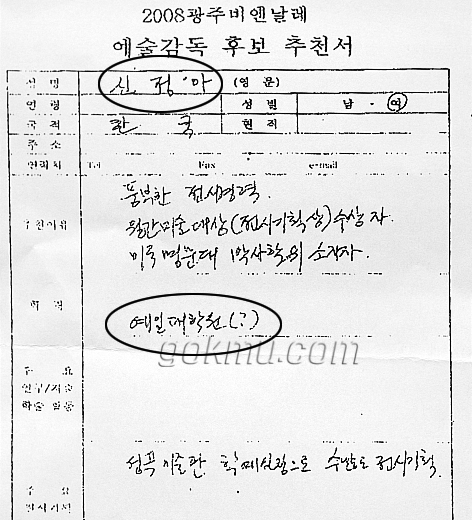 2008광주비엔날레
예술감독 후보 추천서
성 명 신 정 아 (영 문)
연 령 성 별 남 · 여
국 적 한 국 현 직
주 소
연락처 Tel Fax e-mail
풍부한 전시경력.
추천이유 월간미술대상(전시기획상) 수상자.
미국 명문대 박사학위 소지자
학 력
예일대학원(?)
gokmu.com
주 요
연구/저술
학술 활동
성곡미술관 학예실장으로 수많은 전시기획.
주 요
전시기획